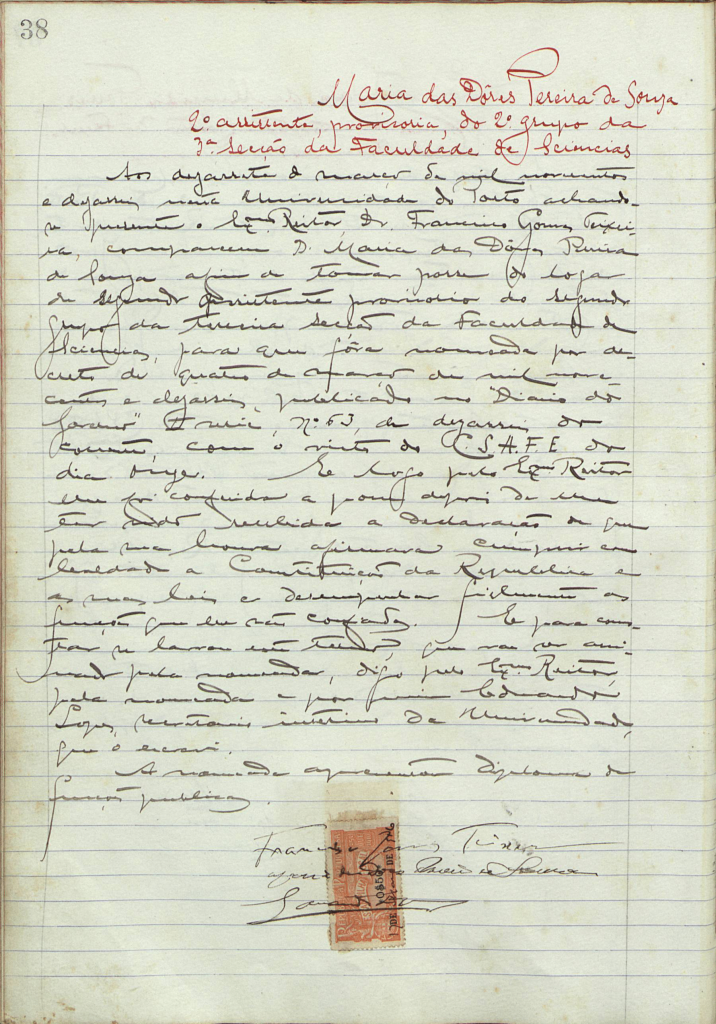 38
Maria das Dôres Pereira de Souza
2º assistente, provisoria, do 2º grupo da
3ª Secção da Faculdade de Sciencias
Aos dezassete de março de mil novecentos
e dezasseis nesta Universidade do Porto achando-
se presente o Exmo Reitor, Dr. Francisco Gomes Teixei-
ra, compareceu D. Maria das Dôres Pereira
de Souza afim de tomar posse do logar
de segundo assistente provisorio do segundo
grupo da terceira Secção da Faculdade de
Sciencias, para que fôra nomeada por de-
creto de quatro de março de mil nove-
centos e dezasseis, publicado no "Diario do
Governo" II serie, nº 63, de dezasseis do
corrente, com o visto do C.S.A.F.E. do
dia onze. E logo pelo Exmo Reitor
lhe foi conferida a posse depois de lhe
ter sido recebida a declaração de que
pela sua honra afirmava cumprir com
lealdade a Constituição da Republica e
as suas leis e desempenhar fielmente as
funções que lhe são confiadas. E para cons-
tar se lavrou este termo, que vae ser assi-
nado pela nomeada, digo pelo Exmo Reitor,
pela nomeada e por mim Eduardo
Lopes, secretario interino da Universidade,
que o escrevi.
A nomeada apresentou diploma de
funções publicas.
Francisco Gomes Teixeira
Pereira de Souza